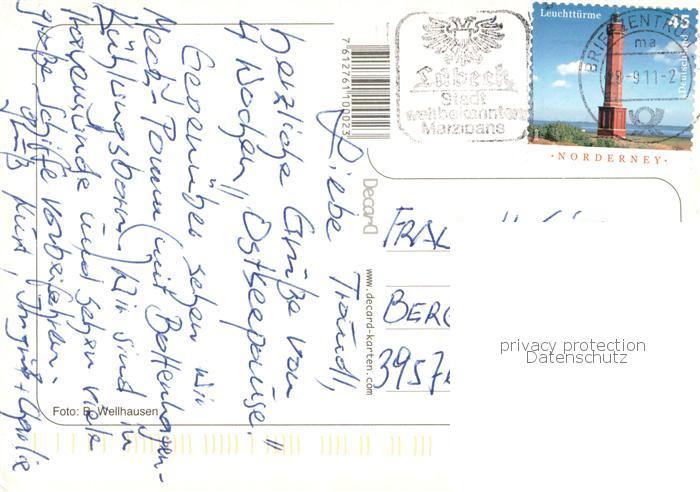 Liebe Traudl,
herzliche Grüße von
4 Wochen "Ostseepause."
Gegenüber sehen wir
Meck-Pomm (mit Boltenhagen-
Kühlungsborn). Wir sind in
Travemünde und sehen viele
große Schiffe vorbeifahren.
Gruß Kurt, Ingrid +
Foto: B. Wellhausen
7612761100023
Decard
www.decard-karten.com
Lübeck
Stadt
weltbekannten
Marzipans
Leuchttürme
45
Deutschland
BRIEFZENTRUM
ma
-9.11-2
·NORDERNEY·
FRAU
BERG
3957
privacy protection
Datenschutz